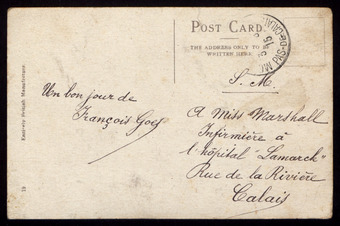 POST CARD.
THE ADDRESS ONLY TO BE
WRITTEN HERE.
PAS-DE-CALAIS
S. M.
Un bon jour de
François Goes
A Miss Marshall
Infirmière à
l'hôpital "Lamarck"
Rue de la Rivière
Calais
Entirely British Manufacture.